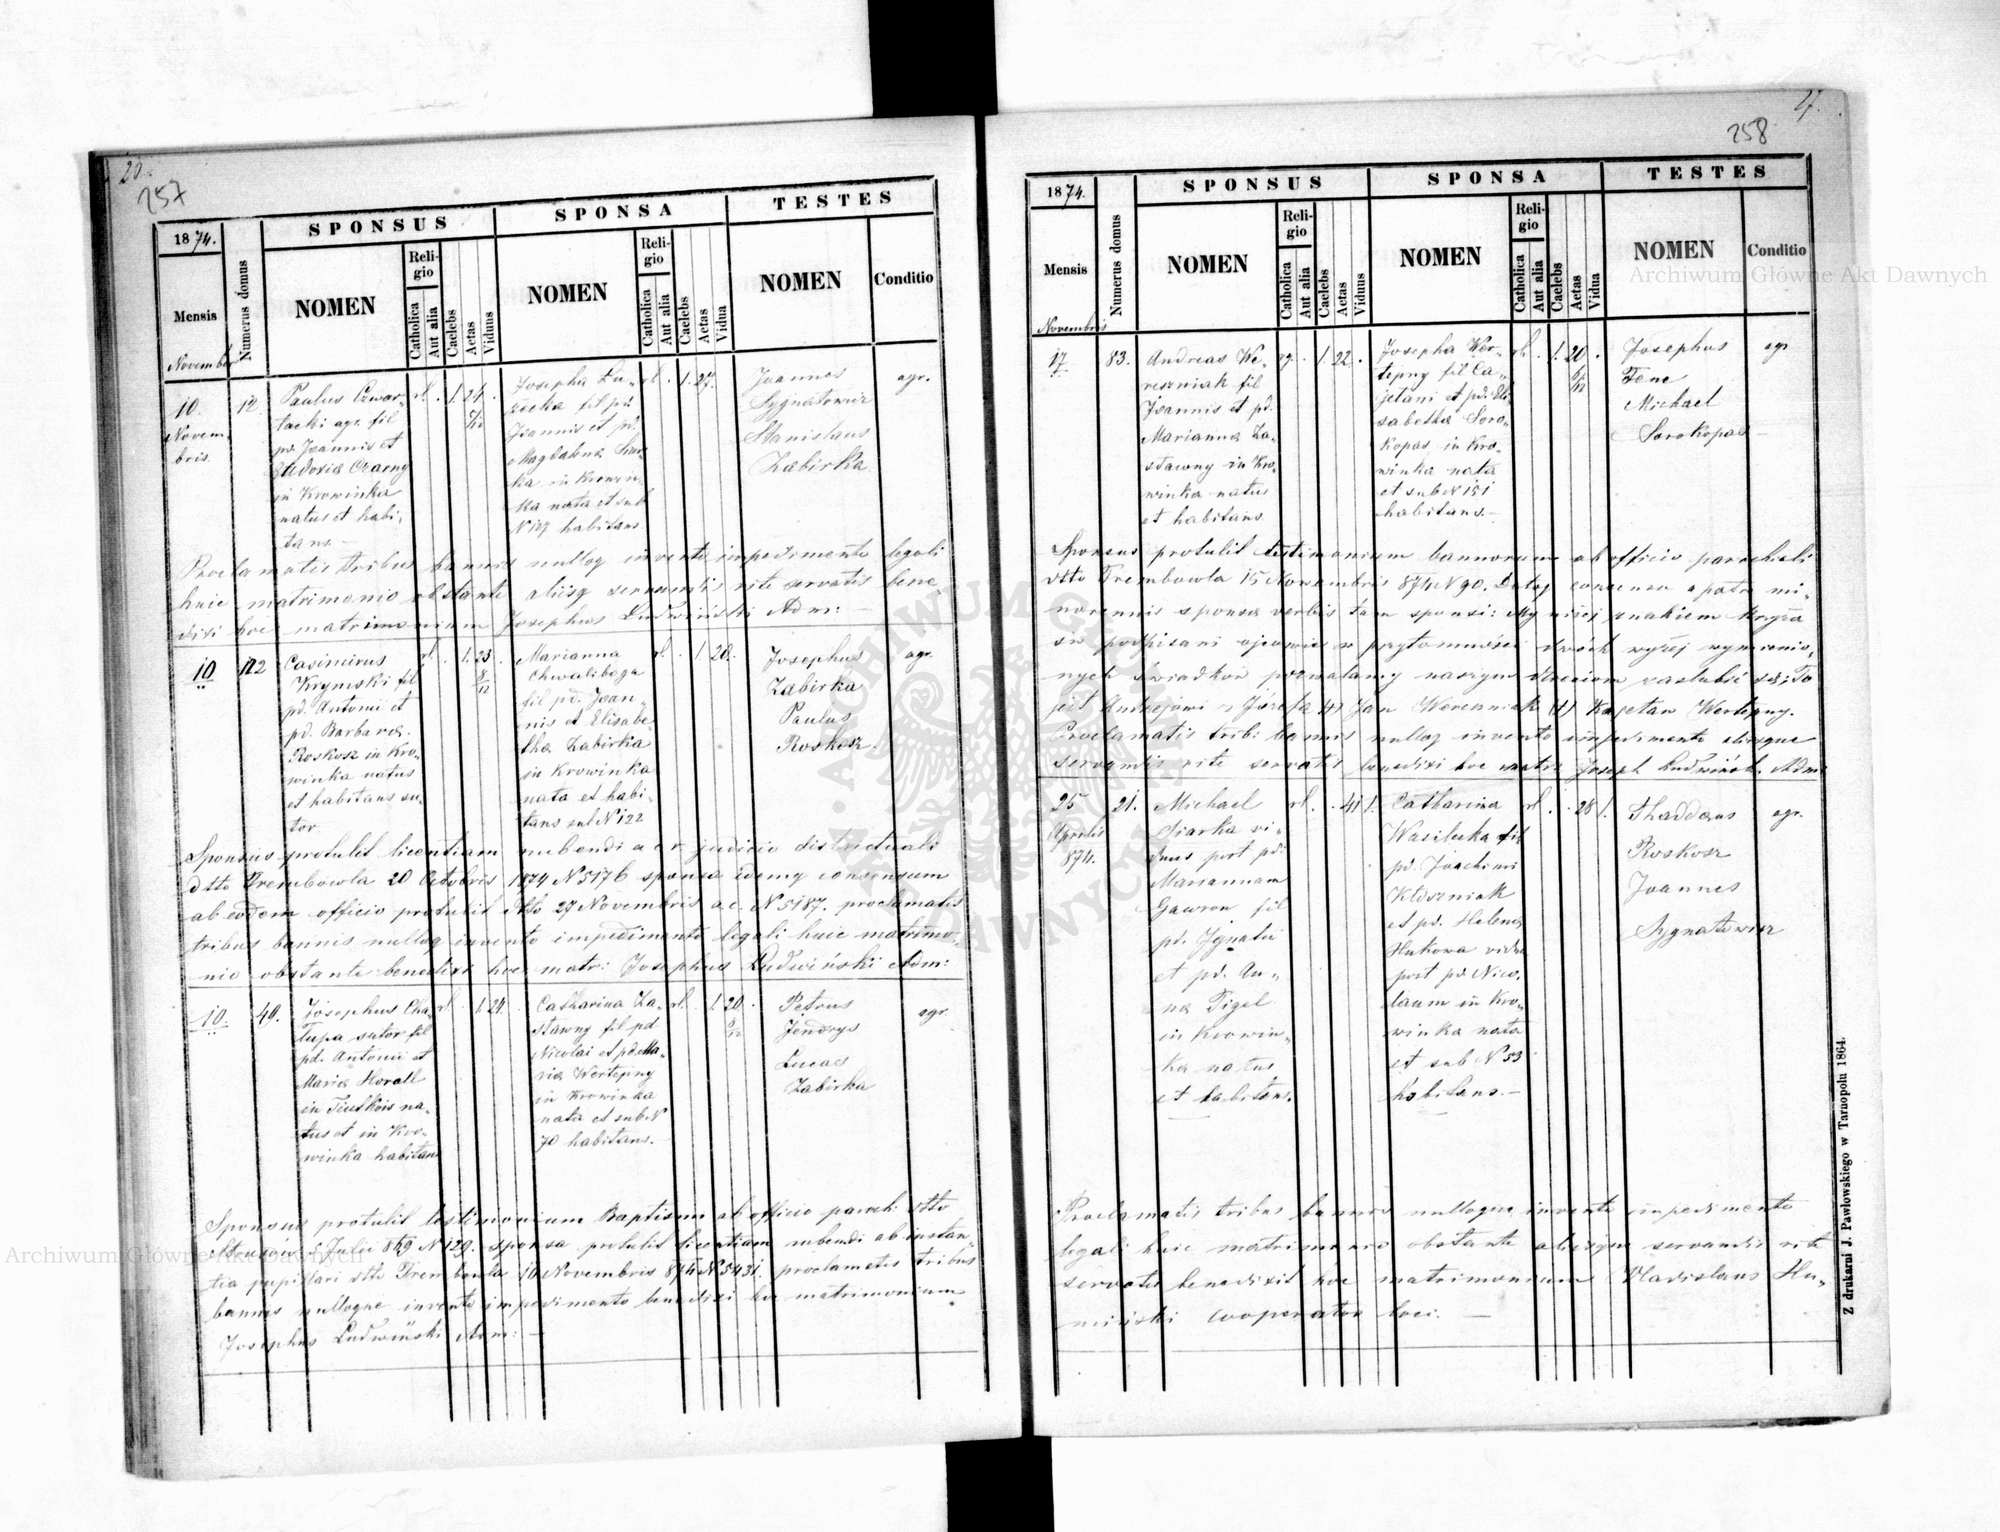 20.
257
1874.
Mensis
Numerus domus
SPONSUS
NOMEN
Religio
Catholica
Aut alia
Caelebs
Aetas
Viduus
SPONSA
NOMEN
Religio
Catholica
Aut alia
Caelebs
Aetas
Vidua
TESTES
NOMEN
Conditio
Novembr
10.
Novem.
bris.
12.
Paulus Czwar-
tacki agr. fil
pd. Joannis et
Eudoxia Czarny
in Krowinka
natus et habi-
tans. —
rl. . 1. 24 .
7/12
Josepha
fil pd.
Joannis et pd.
Magdalena
ka in Krowin-
ka nata et sub
N 127 habitans
rl. . 1. 27.
Joannes
Sygnatowicz
Stanislaus
Zabirka
agr.
Proclamatis tribus bannis nulloq invento impedimento legali
huic matrimonio obstante aliisq servandis rite servatis bene,
dixi hoc matrimonium Josephus Ludwiński Adm: —
10
122
Casimirus
Krymski fil
pd. Antonii et
pd. Barbara
Roskosz in Kro-
winka natus
et habitans su-
tor.
rl. . 1. 23.
8/12
Marianna
Chwaliboga
fil pd. Joan-
nis et Elisabe-
tha Zabirka
in Krowinka
nata et habi-
tans sub N 122
rl. . 1. 20.
Josephus
Zabirka
Paulus
Roskosz.
agr.
Sponsus protulit licentiam nubendi a c. r. judicio districtuali
dtto Trembowla 20 Octobris 1874 N 5176 sponsa idemq consensum
ab eodem officio protulit dtto 27 Novembris a.c. N 5187. proclamatis
tribus bannis nulloq invento impedimento legali huic matrimo-
nio obstante benedixi hoc matr: Josephus Ludwiński Adm:
10.
49.
Josephus Cha-
łupa sutor fil
pd. Antonii et
Maria Horall
in na-
tus et in Kro-
winka habitans
rl. . 1. 24. .
Catharina Za-
stawny fil pd
Nicolai et pd. Ma-
ria Wertepny
in Krowinka
nata et sub N
70 habitans. —
rl. . 1. 20. .
8/12
Petrus
Jendrys
Lucas
Zabirka
agr.
Sponsus protulit testimonium Baptismi ab officio paroch: dtto
Julii 869 N 129. sponsa protulit licentiam nubendi ab instan-
tia pupillari dtto Trembowla 10 Novembris 874 N 5431. proclamatis tribus
bannis nulloque invento impedimento benedixi hoc matrimonium
Josephus Ludwiński Adm: —
27.
258
1874.
Mensis
Numerus domus
SPONSUS
NOMEN
Religio
Catholica
Aut alia
Caelebs
Aetas
Viduus
SPONSA
NOMEN
Religio
Catholica
Aut alia
Caelebs
Aetas
Vidua
TESTES
NOMEN
Conditio
Novembris
17
83.
Andreas We-
reszniak fil
Joannis et pd.
Marianna Za-
stawny in Kro-
winka natus
et habitans
rg. . 1. 22 .
Josepha Wer-
tepny fil Ca-
jetani et pd. Eli-
sabetha Soro-
kopas in Kro-
winka nata
et sub N 151
habitans. —
rl. . 1. 20 .
6/12
Josephus
Fenc
Michael
Sorokopas —
agr
Sponsus protulit testimonium bannorum ab officio parochali
dtto Trembowla 15 Novembris 874 N 90. Datoq consensu a patre mi-
norennis sponsa verbis tam sponsi: My niżej znakiem krzyża
św podpisani ojcowie w przytomności dwóch wyżej wymienio-
nych świadków pozwalamy naszym dzieciom zaślubić się, To
jest Andrzejowi z Józefą (+) Jan Wereszniak (+) Kajetan Wertepny.
Proclamatis trib: bannis nulloq invento impedimento aliisque
servandis rite servatis benedixi hoc matri Joseph Ludwińsk. Adm
25
Aprilis
874.
21.
Michael
Siarka vi-
duus post pd:
Mariannam
Gawron fil
pd. Ignatii
et pd. An-
na Figel
in Krowin-
ka natus
et habitans.
rl. . . 41 1.
Catharina
Wasiluka fil
pd. Joachimi
et pd. Helena
Hukowa vidua
post pd. Nico-
laum in Kro-
winka nata
et sub N 53
habitans. —
rl. . . 28 1.
Thaddeus
Roskosz
Joannes
Sygnatowicz
agr.
Proclamatis tribus bannis nulloque invento impedimento
legali huic matrimonio obstante aliisque servandis rite
servatis benedixit hoc matrimonium Vladislaus Hu-
miński cooperator loci. —
Z drukarni J. Pawłowskiego w Tarnopolu 1864.
Archiwum Główne Akt Dawnych
Archiwum Główne Akt Dawnych
ARCHIWUM GŁÓWNE AKT DAWNYCH